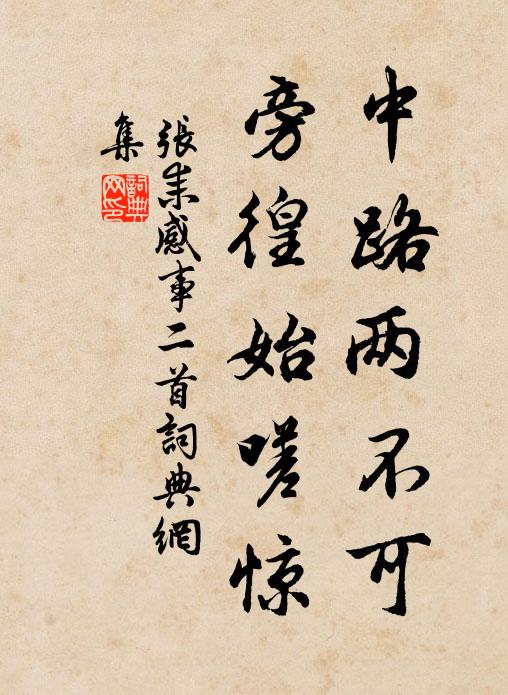 中路两不可
旁徨始嗟惊
張耒感事二首詞典網
集
詞典
网印